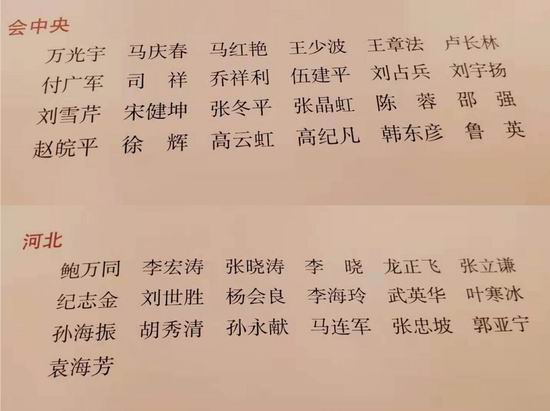 会中央
万光宇 马庆春 马红艳 王少波 王章法 卢长林
付广军 司祥 乔祥利 伍建平 刘占兵 刘宇扬
刘雪芹 宋健坤 张冬平 张晶虹 陈蓉 邵强
赵皖平 徐辉 高云虹 高纪凡 韩东彦 鲁英
河北
鲍万同 李宏涛 张晓涛 李晓 龙正飞 张立谦
纪志金 刘世胜 杨会良 李海玲 武英华 叶寒冰
孙海振 胡秀清 孙永献 马连军 张忠坡 郭亚宁
袁海芳